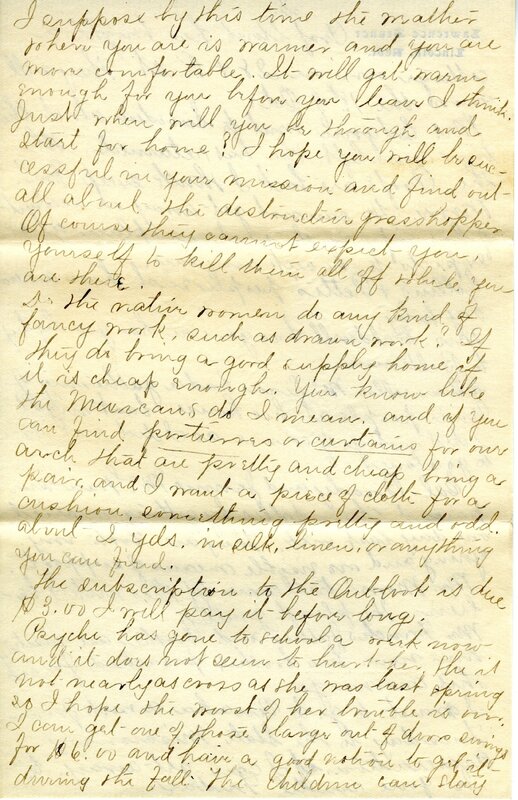 I suppose by this time the mather
where you are is warmer and you are
more comfortable. It will get warm
enough for you before you leave I think.
Just when will you be through and
start for home? I hope you will be suc-
cessful in your mission and find out
all about the destructive grasshopper
Of course they cannot expect you,
yourself to kill them all off while you
are there.
Do the native women do any kind of
fancy work, such as drawn work? If
they do bring a good supply home if
it is cheap enough. You know like
the Mexicans do I mean. and if you
can find portierres or curtains for our
arch that are pretty and cheap bring a
pair, and I want a piece of cloth for a
cushion, something pretty and odd.
about 2 yds. in silk, linen, or anything
you can find.
The subscription to the Outlook is due
$3.00 I will pay it before long.
Psyche has gone to school a week now
and it does not seem to hurt her. She is
not nearly as cross as she was last spring
so I hope the worst of her trouble is over.
I can get one of those large out of doors swings
for $6.00 and have a good notion to get it
during the Fall. The children can stay